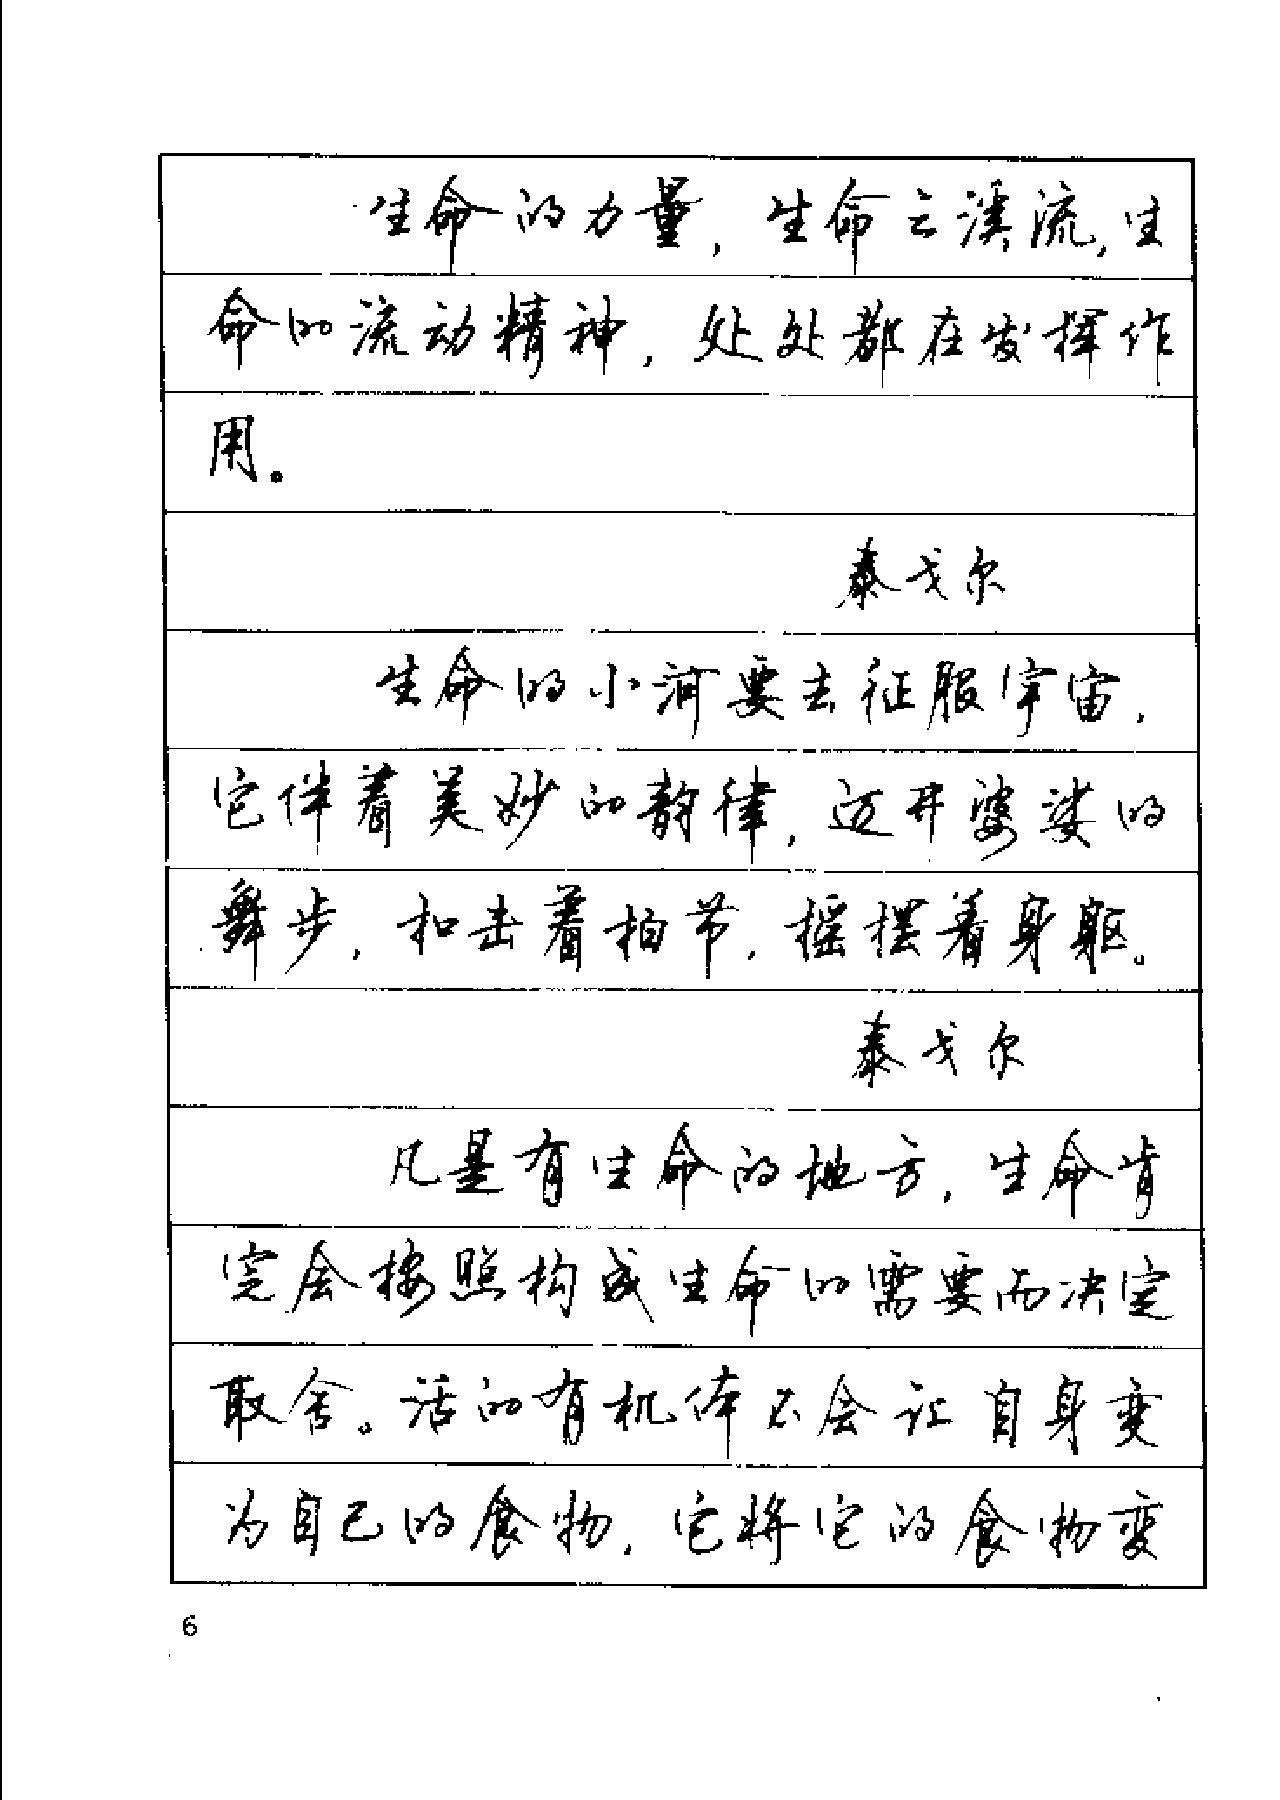 生命的力量，生命之溪流，生
命的流动精神，处处都在发挥作
用。
泰戈尔
生命的小河要去征服宇宙，
它伴着美妙的韵律，迈开婆娑的
舞步，扣击着拍节，摇摆着身躯。
泰戈尔
凡是有生命的地方，生命肯
定会按照构成生命的需要而决定
取舍。活的有机体不会让自身变
为自己的食物，它将它的食物变
6